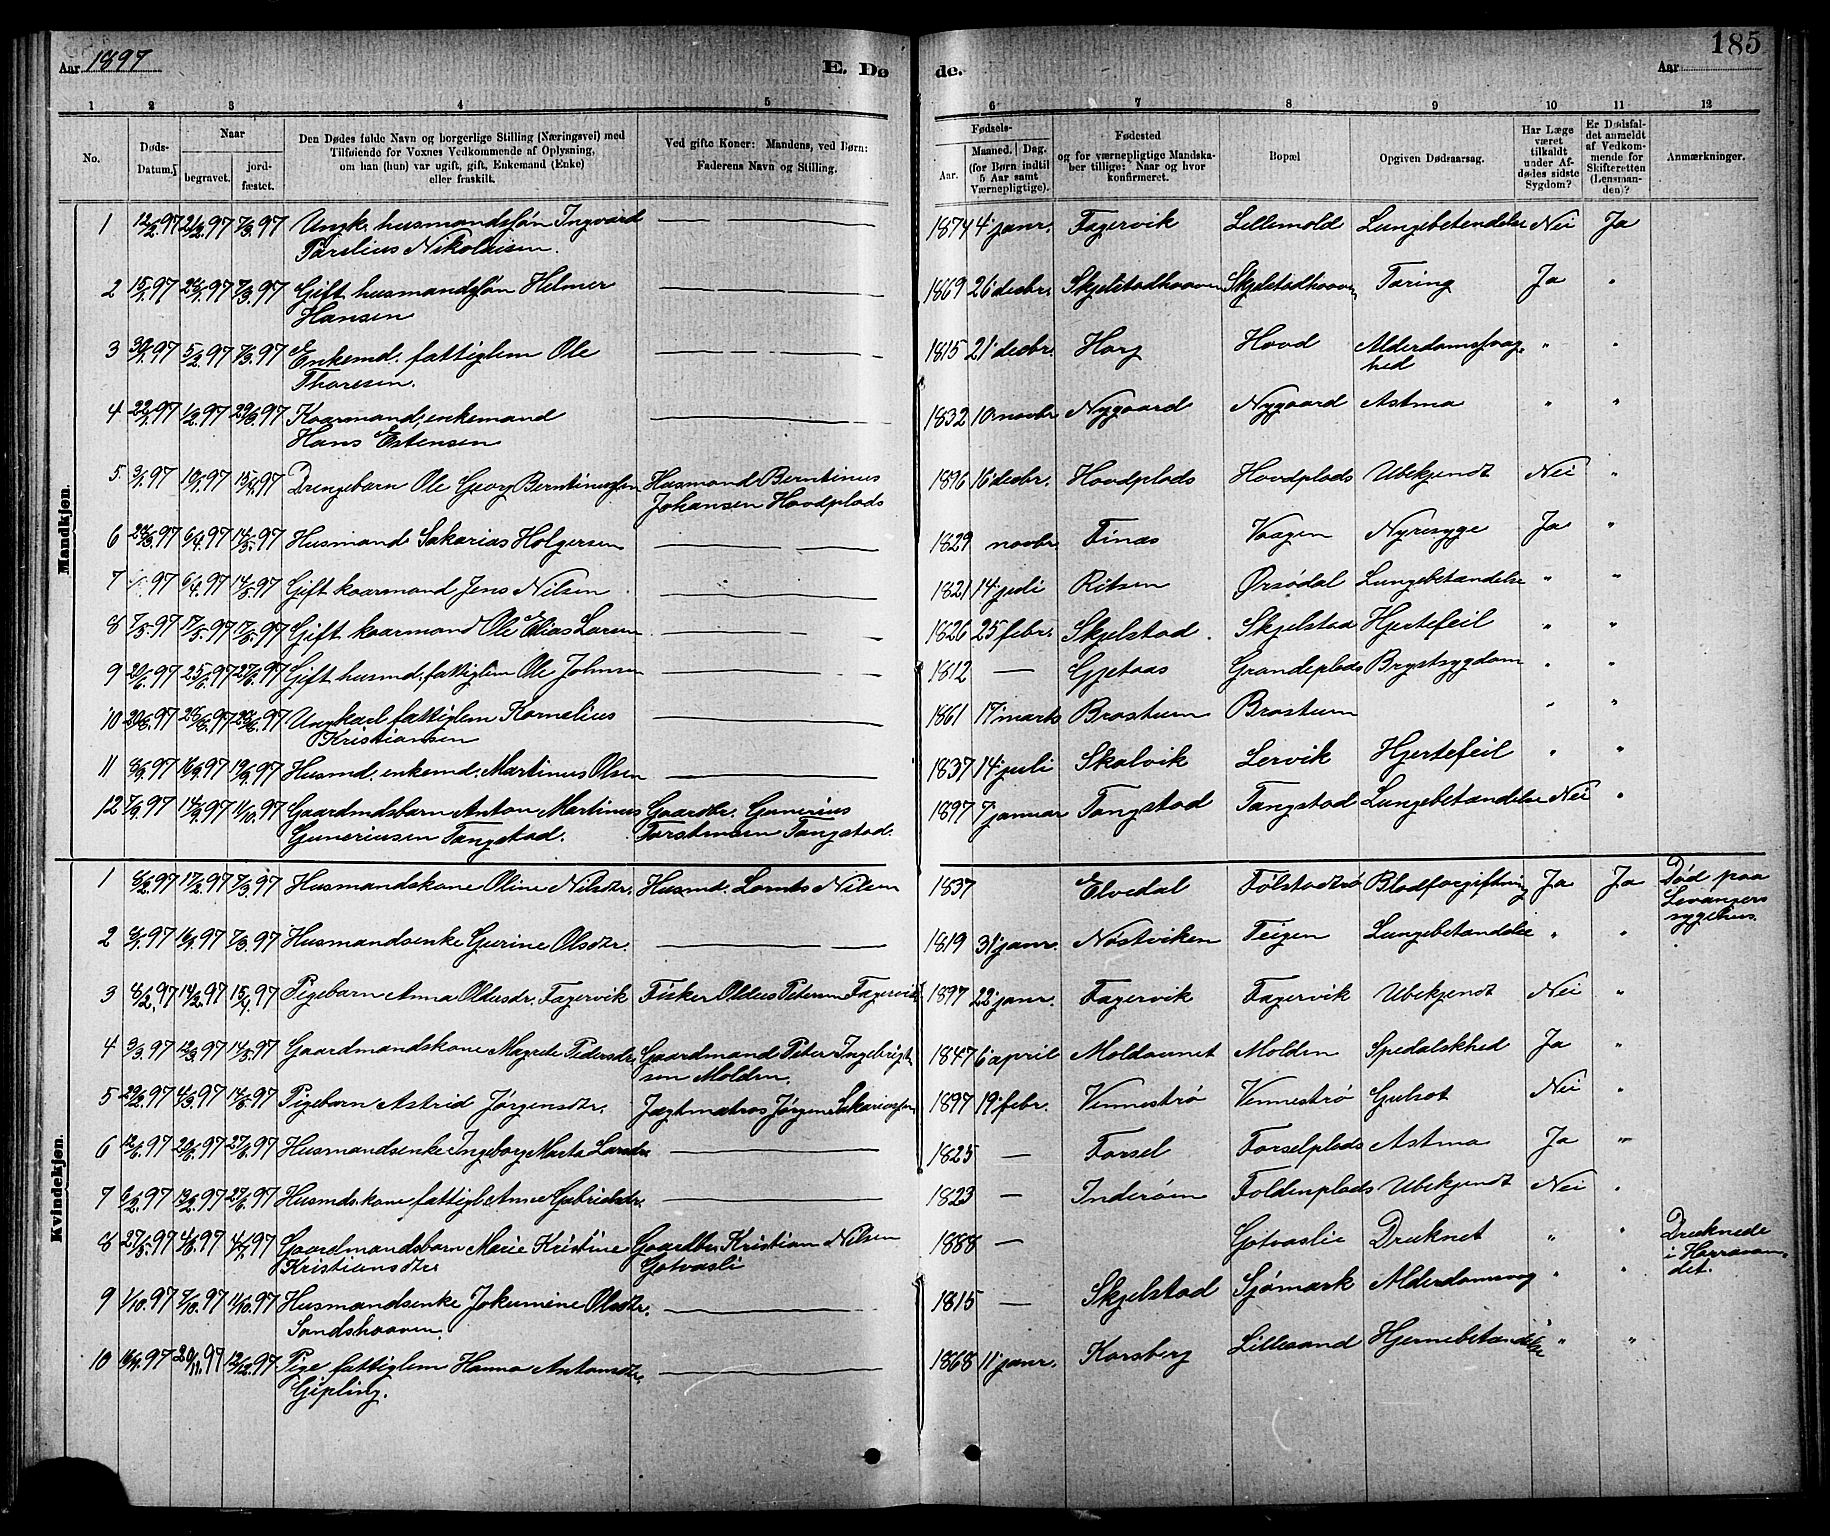 185
Aar 1897
E. Dø
de.
Aar
1 2 3 4 5 6 7 8 9 10 11 12
No.
Døds-
Datum.
Naar
begravet.
jord-
fæstet.
Den Dødes fulde Navn og borgerlige Stilling (Næringsvei) med
Tilføiende for Voxnes Vedkommende af Oplysning,
om han (hun) var ugift, gift, Enkemand (Enke)
eller fraskilt.
Ved gifte Koner: Mandens, ved Børn:
Faderens Navn og Stilling.
Fødsels-
Aar.
Maaned. Dag.
(for Børn indtil
5 Aar samt
Værnepligtige).
Fødested
og for værnepligtige Mandska-
ber tillige: Naar og hvor
konfirmeret.
Bopæl
Opgiven Dødsaarsag.
Har Læge
været
tilkaldt
under Af-
dødes sidste
Sygdom?
Er Dødsfal-
det anmeldt
af Vedkom-
mende for
Skifteretten
(Lensman-
den)?
Anmærkninger.
Mandkjøn.
1 12/2.97 21/2.97 7/3.97 Ungk. husmandssøn Ingvard 1874 4 janr. Fagervik Lillemold Lungebetendelse Nei Ja
Parelius Nikolaisen.
2 15/1.97 7/3.97 Gift husmandssøn Helmer 1869 26 decbr. Skjelstadhaaven Skjelstadhaaven Tæring Ja "
Hansen
3 30/1.97 5/2.97 7/3.97 Enkemd. fattiglem Ole 1815 21 decbr. Hovd Alderdomssvag- " "
Thoresen. hed
4 22/1.97 1/2.97 Kaarmand, enkemand 1832 10 novbr. Nygaard Nygaard Astma " "
Hans Estensen
5. 3/1.97 10/1.97 15/4.97 Drengebarn Ole Georg Berntinussen Husmand Berntinus 1896 16 decbr. Hovdplads Hovdplads Ubekjendt Nei "
Johansen Hovdplads
6 6/4.97 14/5.97 Husmand Sakarias Holgersen 1829 novbr. Finæs Vaagen Nyresyge Ja "
7 6/4.97 14/5.97 Gift kaarmand Jens Nilsen 1821 14 juli Ritsen Ørsødal Lungebetændelse " "
8 7/5.97 17/5.97 17/5.97 Gift kaarmand Ole Elias Larsen 1826 25 febr. Skjelstad. Skjelstad Hjertefeil " "
9 20/6.97 25/6.97 27/6.97 Gift husmd. fattiglem Ole Johnsen 1812 — Gjetaas Grandeplads Brystsygdom " "
10 Ungkarl fattiglem Kornelius 1861 17 marts Brastum Brastum " "
Kristiansen
11 8/9.97 16/9.97 19/9.97 Husmd. enkemd. Martinus Olsen 1837 14 juli Skalvik Lervik Hjertefeil " "
12 7/9.97 14/9.97 11/10.97 Gaardmdsbarn Anton Martinus Gaardbr. Gunerius 1897 7 januar Tangstad Tangstad Lungebetændelse Nei "
Guneriusen Tangstad. Torstensen Tangstad.
Kvindekjøn.
1 8/2.97 17/2.97 7/3.97 Husmandskone Oline Nilsdtr. Husmd. Lornts Nilsen 1837 Elvedal Følstadtrø Blodforgiftning Ja Ja Død paa
Levangers
sygehus.
2 16/1.97 7/3.97 Husmandsenke Gurine Olsdtr. 1819 31 janr. Nøstviken Teigen Lungebetændelse " "
3 8/2.97 14/2.97 15/4.97 Pigebarn Anna Oldusdr. Fagervik Fisker Oldus Petersen Fagervik 1897 22 janr. Fagervik Fagervik Ubekjendt Nei "
4 3/3.97 12/3.97 14/5.97 Gaardmandskone Magrete Pedersdtr. Gaardmand Peter Ingebrigt- 1847 6 april Moldavnet Molden Spedalskhed Ja "
sen Molden.
5 4/3.97 14/5.97 Pigebarn Astrid Jørgensdtr. Jægtmatros Jørgen Sakariassen 1897 19 febr. Vennestrø Vennestrø Gulsot Nei "
6 12/6.97 20/6.97 27/6.97 Husmandsenke Ingeborg Marta Larsdtr. 1825 — Forsel Forselplads Astma Ja "
7 13/2.97 27/6.97 Husmds.kone fattigl. Anne Gabrielsdtr. 1823 — Inderøen Foldenplads Ubekjendt Nei "
8 27/5.97 4/6.97 4/7.97 Gaardmandsbarn Marie Kristine Gaardbr. Kristian Nilsen 1888 — Gotvaslie Druknet " " Druknede
Kristiansdtr Gotvasli i Harravan-
det.
9 1/10.97 7/10.97 11/10.97 Husmandsenke Jokumine Olsdtr. 1815 — Skjelstad Sjømark Alderdomssvag " "
Sandshaaven.
10 20/11.97 12/12.97 Pige fattiglem Hanna Antonsdtr. 1868 11 janr. Korsberg Lillesand Hjernebetændelse " "
Gipling.